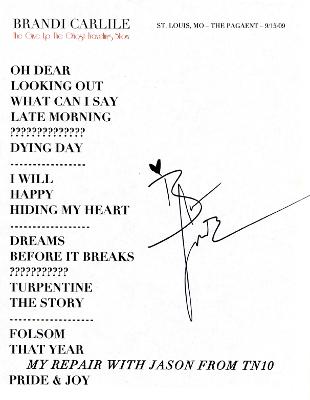 BRANDI CARLILE
The Give Up The Ghost Traveling Show
ST. LOUIS, MO – THE PAGAENT – 9/15/09
OH DEAR
LOOKING OUT
WHAT CAN I SAY
LATE MORNING
??????????????
DYING DAY
---------------
I WILL
HAPPY
HIDING MY HEART
---------------
DREAMS
BEFORE IT BREAKS
???????????
TURPENTINE
THE STORY
----------------
FOLSOM
THAT YEAR
MY REPAIR WITH JASON FROM TN10
PRIDE & JOY